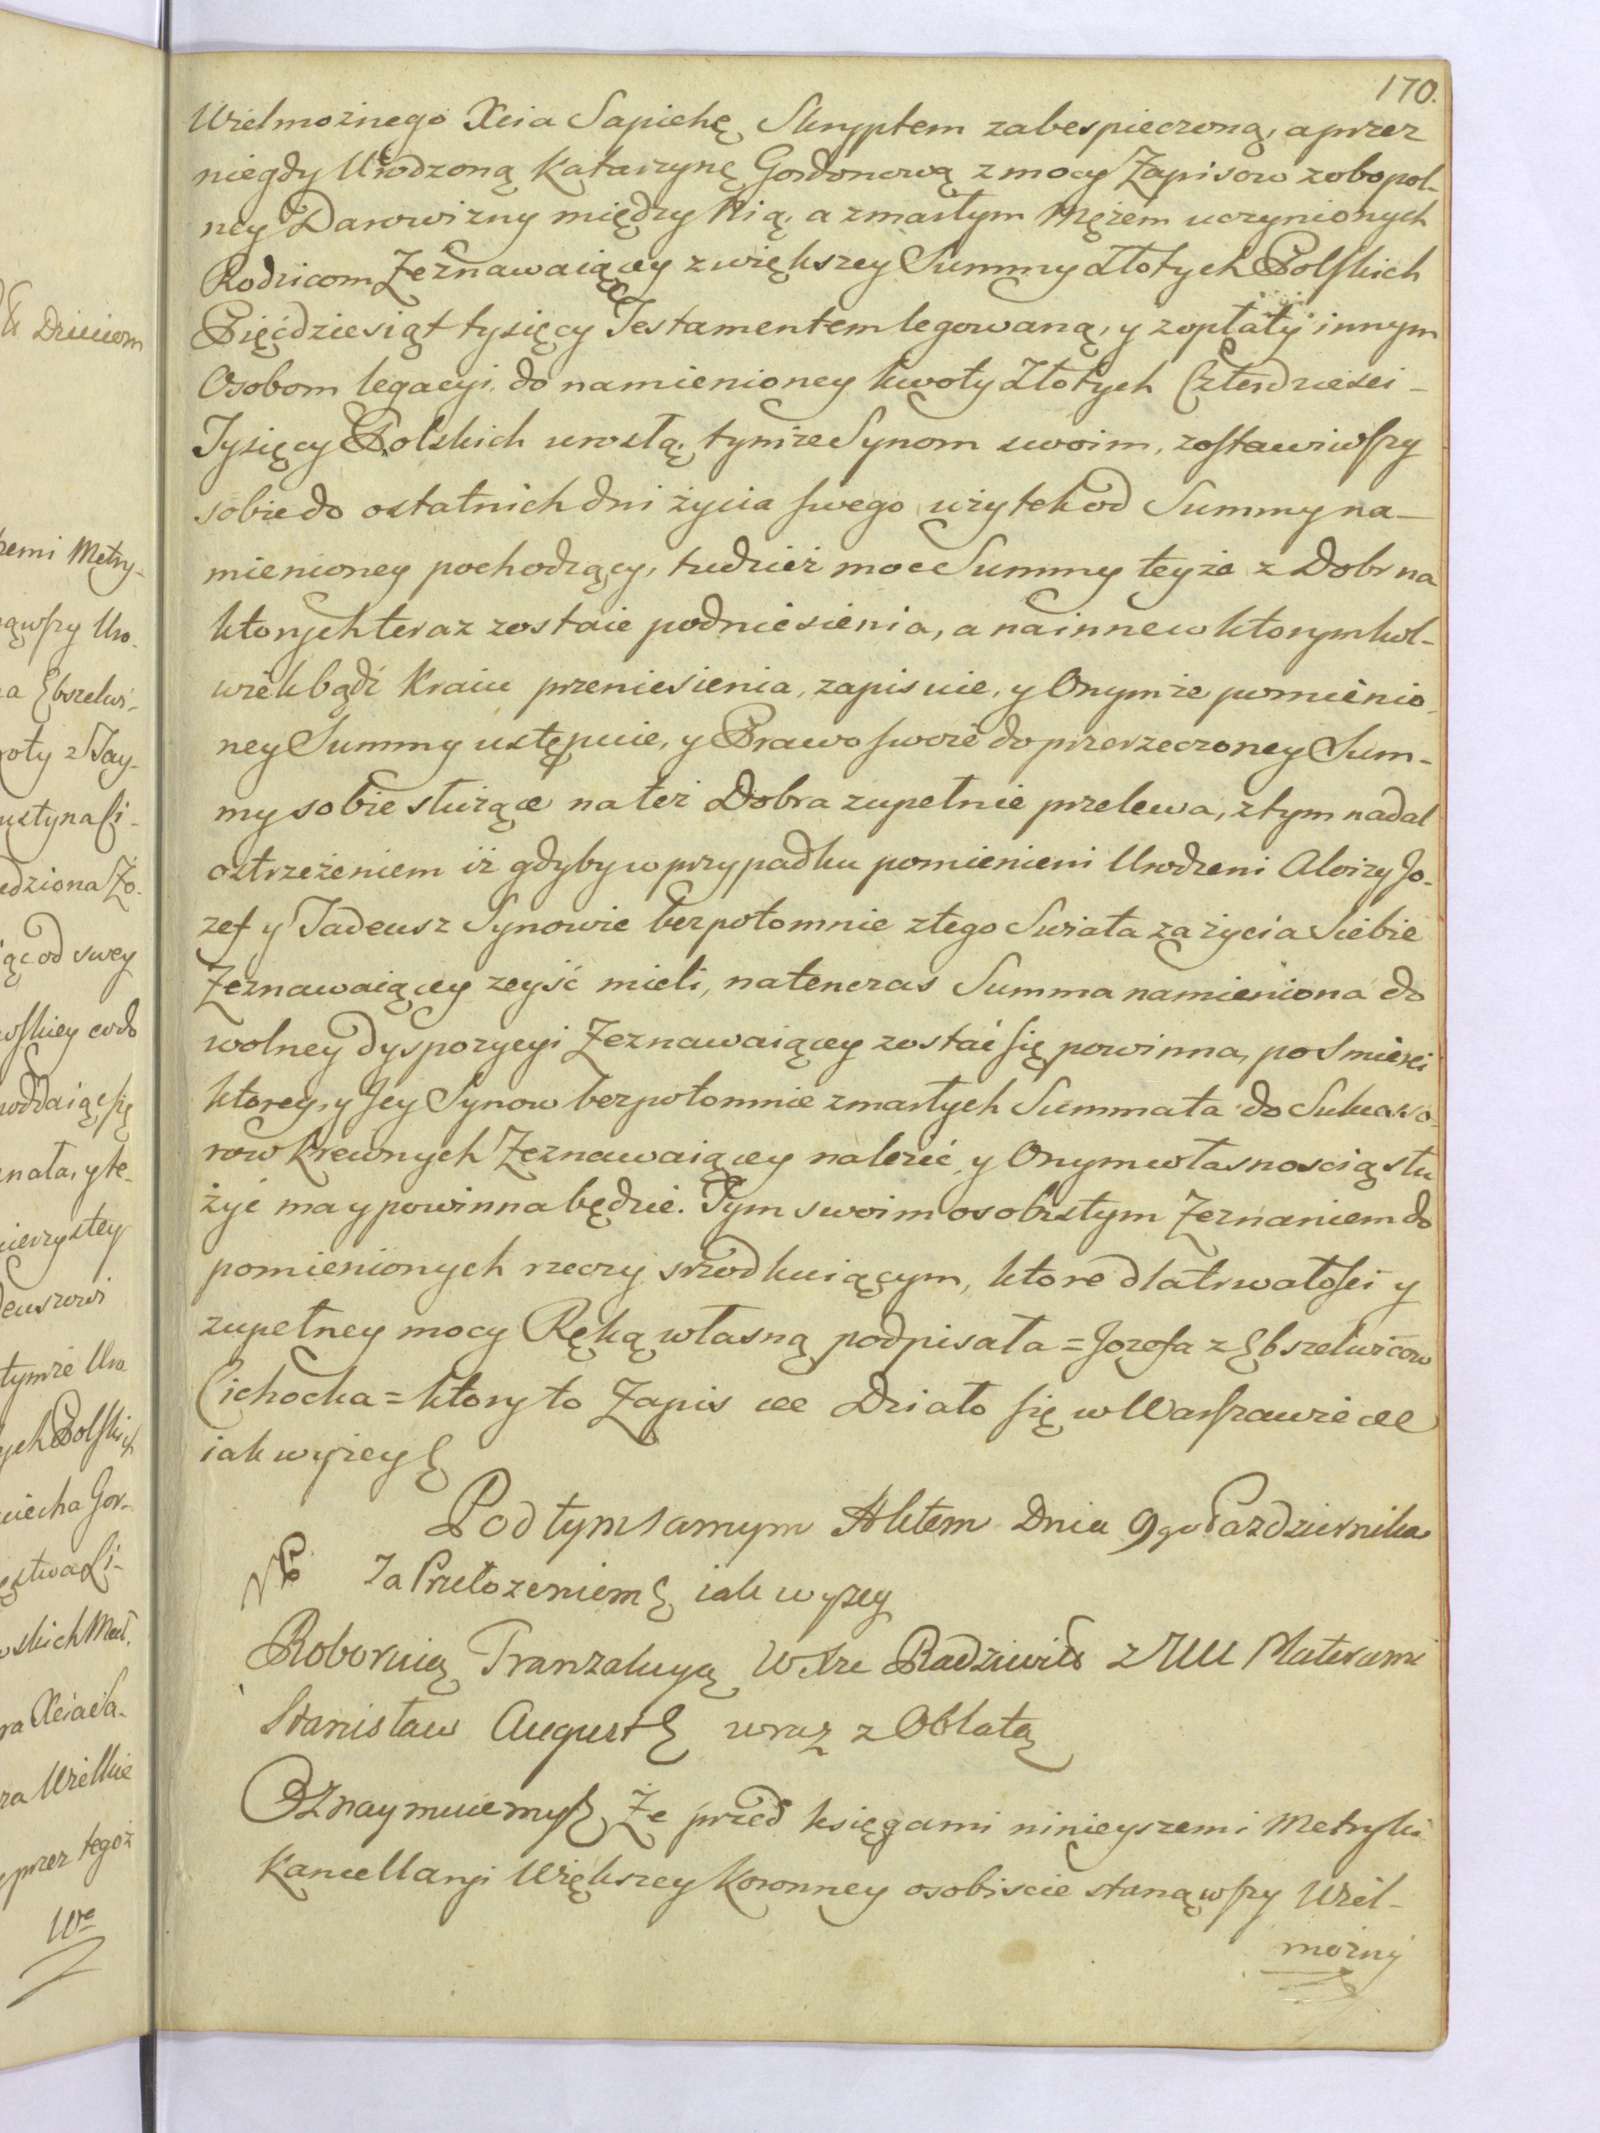 170.
Wielmożnego Xcia Sapiehę Skryptem zabespieczoną, a przez
niegdy Urodzoną Katarzynę Gordonową z mocy Zapisow zobopol-
ney Darowizny między Nią, a zmarłym Mężem uczynionych
Rodzicom Zeznawaiącey z większey Summy Złotych Polskich
Pięćdziesiąt tysięcy Testamentem legowaną, y z opłaty innym
Osobom legacyi, do namienioney kwoty Złotych Czterdzieści-
Tysięcy Polskich urosłą, tymże Synom swoim, zostawiwszy
sobie do ostatnich dni życia swego użytek od Summy na-
mienioney pochodzący, tudzież moc Summy teyże z Dobr na
ktorych teraz zostaie podniesienia, a na inne w ktorymkol-
wiek bądź Kraiu przeniesienia, zapisuie, y Onymże pomienio
ney Summy ustępuie, y Prawo swoie do przerzeczoney Sum-
my sobie służące na też Dobra zupełnie przelewa, z tym nadal
ostrzeżeniem iż gdyby w przypadku pomienieni Urodzeni Aloizy Jo-
zef y Tadeusz Synowie bezpotomnie z tego Swiata za życia Siebie
Zeznawaiącey zeyść mieli, natenczas Summa namieniona do
wolney dyspozycyi Zeznawaiącey zostać się powinna, po Smierci
ktorey, y Jey Synow bezpotomnie zmarłych Summa ta do Sukcesso-
row Krewnych Zeznawaiącey należeć, y Onym własnoscią słu
żyć ma y powinna będzie. Tym swoim osobistym Zeznaniem do
pomienionych rzeczy srzodkuiącym, ktore dla trwałości y
zupełney mocy Ręką własną podpisała = Jozefa z Ebszelwicow
Cichocka = ktory to Zapis etc Działo się w Warszawie etc
iak wyżey
Pod tym samym Aktem Dnia 9go Pazdziernika
Za Przełożeniem iak wyżey
Roboruią Tranzakcyą W Xze Radziwiłł z UUr Platerami
Stanisław August wraz z Oblatą
Oznaymuiemy Że przed księgami ninieyszemi Metryki
Kancellaryi Większey Koronney osobiscie stanąwszy Wiel-
możny
Dzieciom